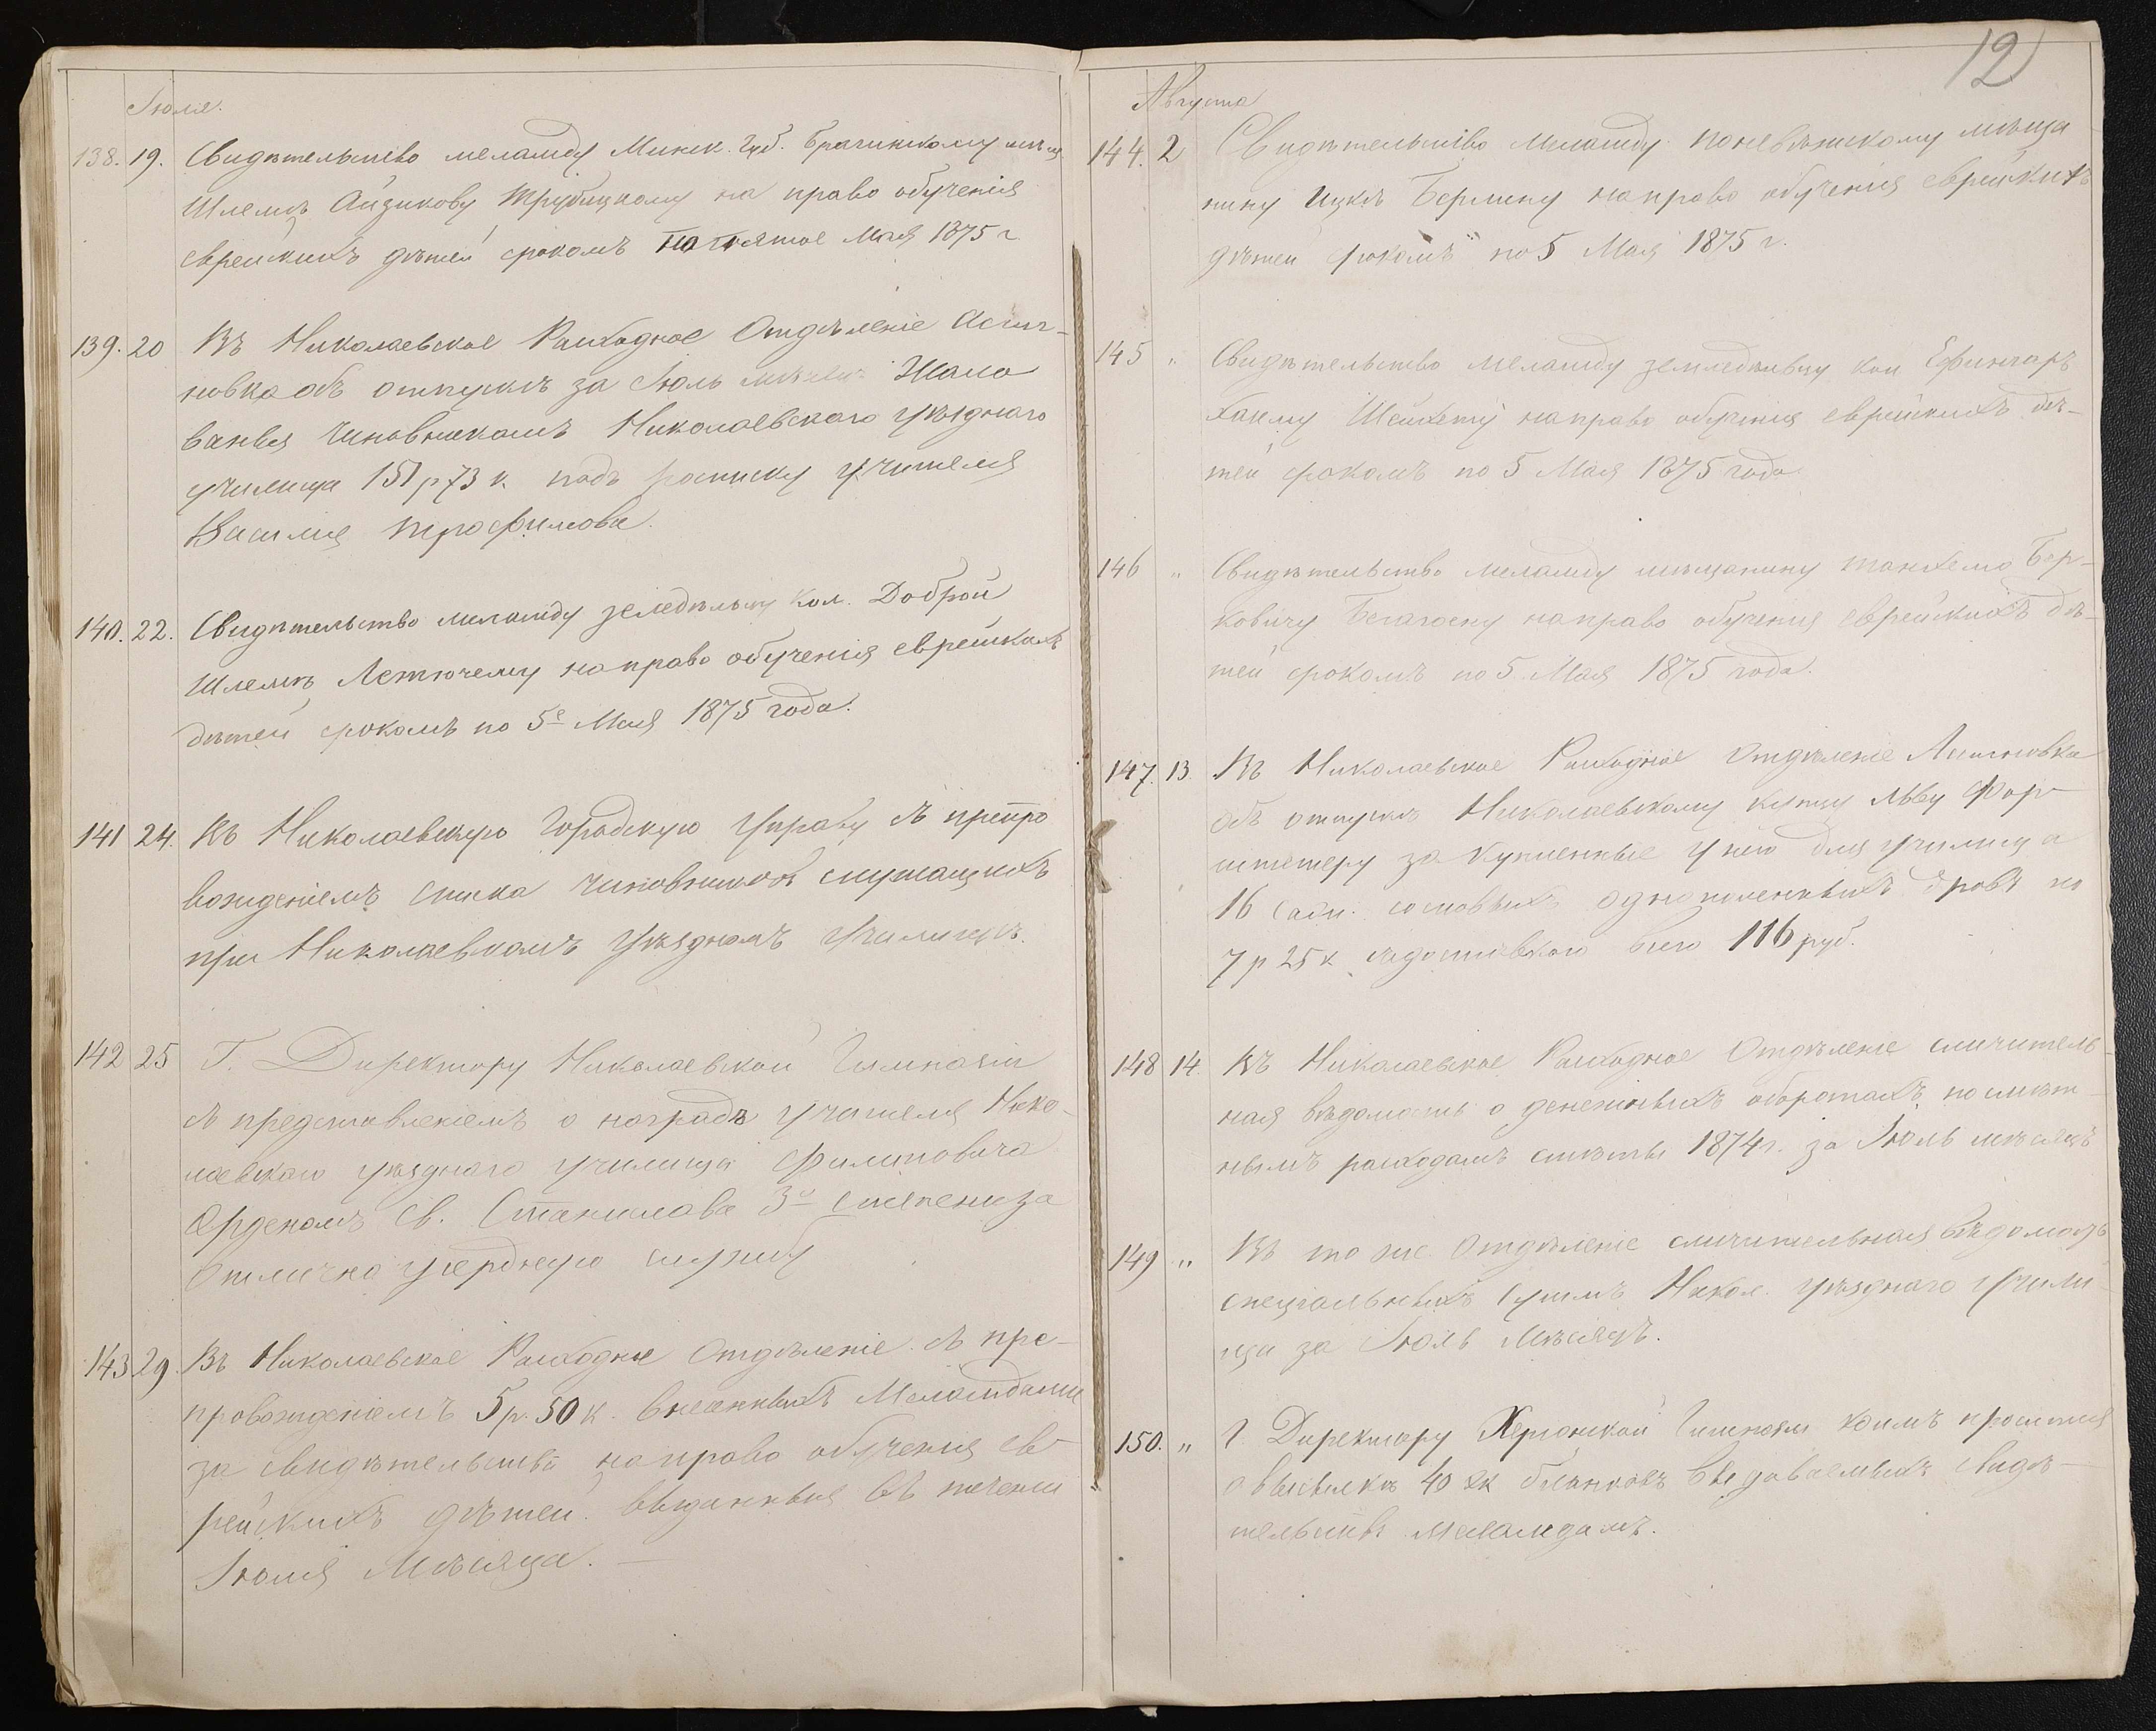 12
Іюля.
138. 19. Свидѣтельство меламду Минск. Губ. Брагинскому мѣщ.
Шлемѣ Айзикову Трубицкому на право обученія
еврейскихъ дѣтей срокомъ по пятое Мая 1875 г
139. 20 Въ Николаевское Расходное Отдѣленіе Асиг-
новка объ отпускѣ за Іюль мѣсяцъ Жало
ванья Чиновникамъ Николаевскаго Уѣзднаго
училища 151 р 73 к. подъ росписку Учителя
Василия Трофимова.
140. 22. Свидѣтельство меламду земледѣльцу кол. Доброй
Шлемѣ Летючему на право обученія еврейскихъ
дѣтей срокомъ по 5е Мая 1875 года.
141 24. Въ Николаевскую Городскую Управу съ препро
вожденіемъ списка чиновниковъ служащихъ
при Николаевскомъ Уѣздномъ Училищѣ.
142 25 Г. Директору Николаевской Гимназіи
съ представленіемъ о наградѣ Учителя Нико-
лаевскаго уѣзднаго училища Филиповича
Орденомъ Св. Станислава 3й степени за
Отлично усердную службу
143 29. Въ Николаевское Расходное Отдѣленіе съ пре-
провожденіемъ 5 р. 50 к. внесенныхъ Меламдами
за свидѣтельства на право обученія ев-
рейскихъ дѣтей выданныя въ течении
Іюля Мѣсяца.
Августа
144. 2 Свидѣтельство Меламду Поневѣжскому мѣща
нину Ицкѣ Берлину на право обученія еврейскихъ
дѣтей срокомъ по 5 Мая 1875 г.
145 " Свидѣтельство меламду земледѣльцу кол Ефингаръ
Хаиму Шейхету на право обученія еврейскихъ дѣ-
тей срокомъ по 5 Мая 1875 года
146 " Свидѣтельство меламду мѣщанину Танхемо Бер-
ковичу на право обученія еврейскихъ дѣ-
тей срокомъ по 5 Мая 1875 года.
147. 13. Въ Николаевское Расходное Отдѣленіе Асигновка
объ отпускѣ Николаевскому купцу Льву Фор-
штетеру за купленные у него для училища
16 саж. сосновыхъ однополенныхъ дровъ по
7 р 25 к съ доставкою всего 116 руб.
148 14. Въ Николаевское Расходное Отдѣленіе сличитель-
ная вѣдомость о денежныхъ оборотахъ по смѣт-
нымъ расходамъ смѣты 1874 г. за Іюль мѣсяцъ
149 " Въ то же Отдѣленіе сличительная вѣдомость
спеціальныхъ Суммъ Никол. Уѣзднаго Учили
ща за Іюль Мѣсяцъ.
150. " Г Директору Херсонской Гимназіи коимъ просится
о высылкѣ 40 бланковъ выдаваемыхъ свидѣ-
тельствъ меламдамъ.